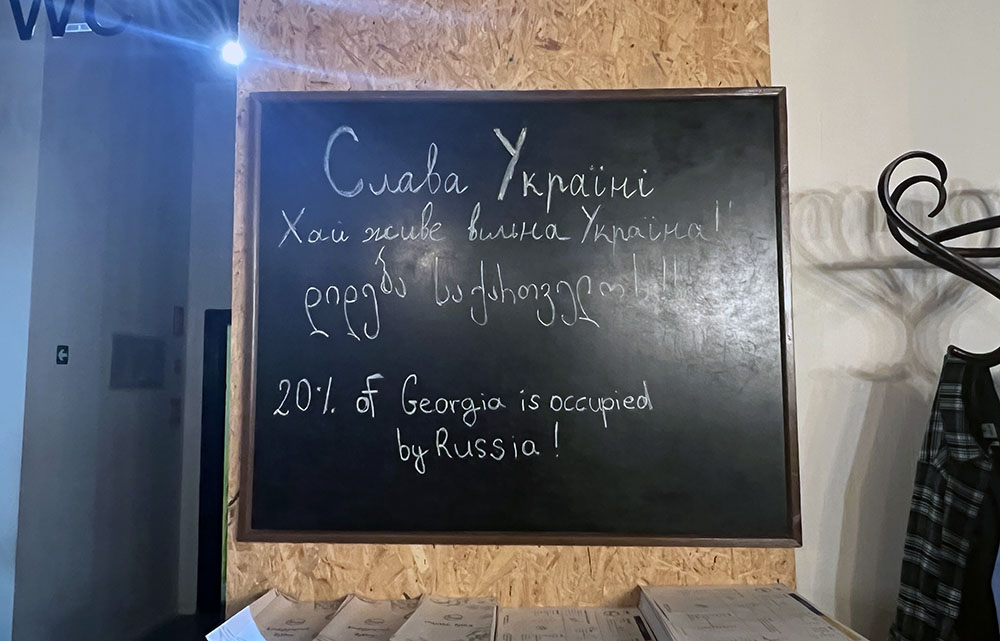 WC
Слава Україні
Хай живе вільна Україна!!
დიდება საქართველოს!!!
20% of Georgia is occupied
by Russia!